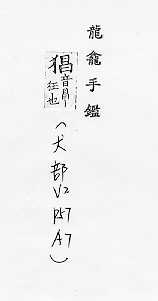 龍龕手鑑
猖音昌
狂也
(犬部
V2
P57
A7)